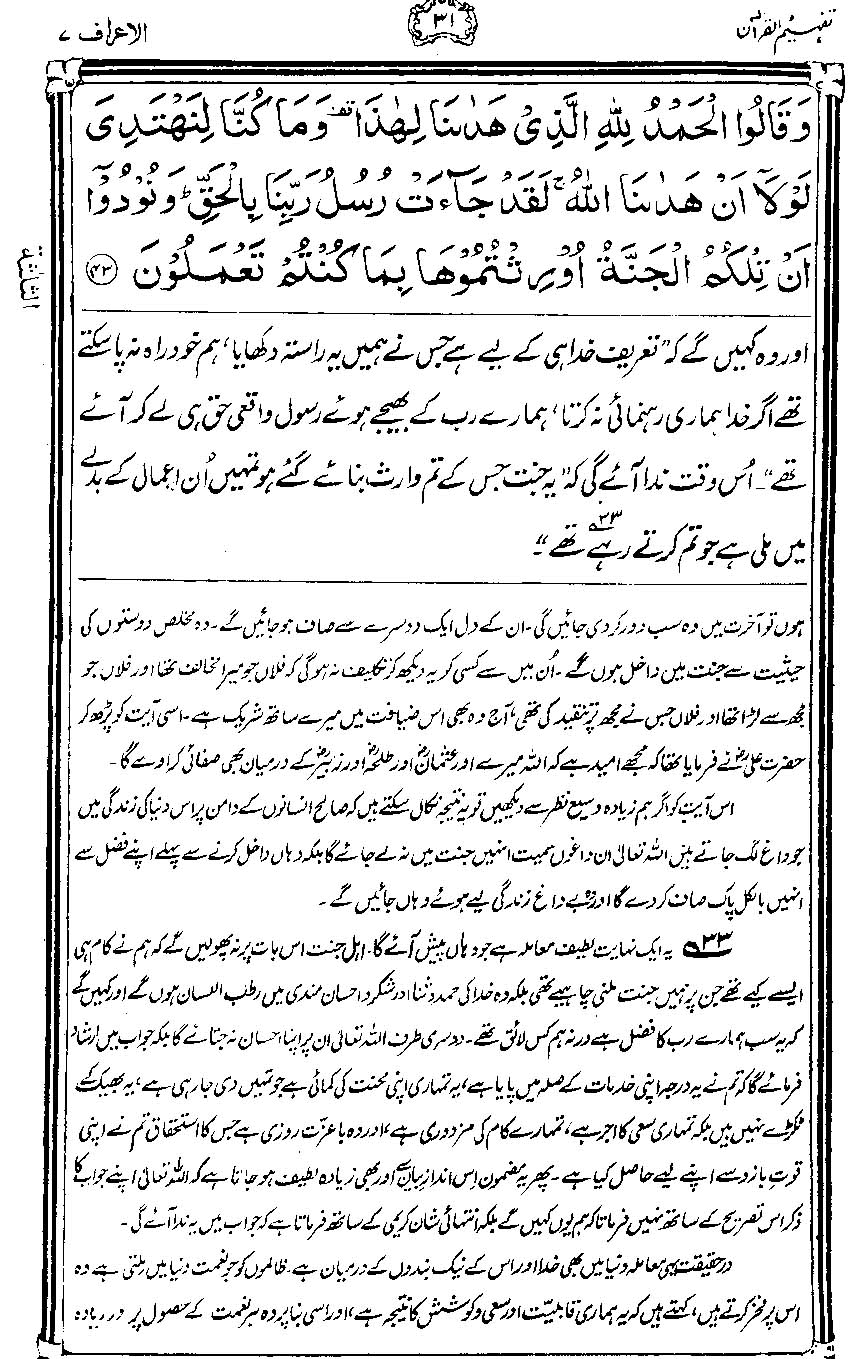 تفہیم القرآن
۳۱
الاعراف ۷
وَقَالُوا الْحَمْدُ لِلّٰهِ الَّذِیْ هَدٰىنَا لِهٰذَا ۫ وَمَا كُنَّا لِنَهْتَدِیَ
لَوْلَاۤ اَنْ هَدٰىنَا اللّٰهُ ۚ لَقَدْ جَآءَتْ رُسُلُ رَبِّنَا بِالْحَقِّ ؕ وَنُوْدُوْۤا
اَنْ تِلْكُمُ الْجَنَّةُ اُوْرِثْتُمُوْهَا بِمَا كُنْتُمْ تَعْمَلُوْنَ ﴿۴۳﴾
اور وہ کہیں گے کہ ”تعریف خدا ہی کے لیے ہے جس نے ہمیں یہ راستہ دکھایا، ہم خود راہ نہ پا سکتے
تھے اگر خدا ہماری رہنمائی نہ کرتا، ہمارے رب کے بھیجے ہوئے رسول واقعی حق ہی لے کر آئے
تھے“۔ اُس وقت ندا آئے گی کہ ”یہ جنت جس کے تم وارث بنائے گئے ہو تمہیں اُن اعمال کے بدلے
میں ملی ہے جو تم کرتے رہے ۳۳ تھے“۔
ہوں تو آخرت میں وہ سب دور کر دی جائیں گی۔ ان کے دل ایک دوسرے سے صاف ہو جائیں گے۔ وہ مخلص دوستوں کی
حیثیت سے جنت میں داخل ہوں گے۔ اُن میں سے کسی کو یہ دیکھ کر تکلیف نہ ہوگی کہ فلاں جو میرا مخالف تھا اور فلاں جو
مجھ سے لڑا تھا اور فلاں جس نے مجھ پر تنقید کی تھی، آج وہ بھی اس ضیافت میں میرے ساتھ شریک ہے۔ اسی آیت کو پڑھ کر
حضرت علیؓ نے فرمایا تھا کہ مجھے امید ہے کہ اللہ میرے اور عثمانؓ اور طلحہؓ اور زبیرؓ کے درمیان بھی صفائی کرا دے گا۔
اس آیت کو اگر ہم زیادہ وسیع نظر سے دیکھیں تو یہ نتیجہ نکال سکتے ہیں کہ صالح انسانوں کے دامن پر اس دنیا کی زندگی میں
جو داغ لگ جاتے ہیں اللہ تعالیٰ ان داغوں سمیت انہیں جنت میں نہ لے جائے گا بلکہ وہاں داخل کرنے سے پہلے اپنے فضل سے
انہیں بالکل پاک صاف کر دے گا اور وہ بے داغ زندگی لیے ہوئے وہاں جائیں گے۔
۳۳ یہ ایک نہایت لطیف معاملہ ہے جو وہاں پیش آئے گا۔ اہل جنت اس بات پر نہ پھولیں گے کہ ہم نے کام ہی
ایسے کیے تھے جن پر ہمیں جنت ملنی چاہیے تھی بلکہ وہ خدا کی حمد و ثنا اور شکر و احسان مندی میں رطب اللسان ہوں گے اور کہیں گے
کہ یہ سب ہمارے رب کا فضل ہے ورنہ ہم کس لائق تھے۔ دوسری طرف اللہ تعالیٰ ان پر اپنا احسان نہ جتائے گا بلکہ جواب میں ارشاد
فرمائے گا کہ تم نے یہ درجہ اپنی خدمات کے صلہ میں پایا ہے، یہ تمہاری اپنی محنت کی کمائی ہے جو تمہیں دی جا رہی ہے، یہ بھیک کے
ٹکڑے نہیں ہیں بلکہ تمہاری سعی کا اجر ہے، تمہارے کام کی مزدوری ہے، اور وہ با عزت روزی ہے جس کا استحقاق تم نے اپنی
قوت بازو سے اپنے لیے حاصل کیا ہے۔ پھر یہ مضمون اِس انداز بیان سے اور بھی زیادہ لطیف ہو جاتا ہے کہ اللہ تعالیٰ اپنے جواب کا
ذکر اس تصریح کے ساتھ نہیں فرماتا کہ ہم یوں کہیں گے بلکہ انتہائی شان کریمی کے ساتھ فرماتا ہے کہ جواب میں یہ ندا آئے گی۔
در حقیقت یہی معاملہ دنیا میں بھی خدا اور اس کے نیک بندوں کے درمیان ہے۔ ظالموں کو جو نعمت دنیا میں ملتی ہے وہ
اس پر فخر کرتے ہیں، کہتے ہیں کہ یہ ہماری قابلیت اور سعی و کوشش کا نتیجہ ہے، اور اسی بنا پر وہ ہر نعمت کے حصول پر اور زیادہ